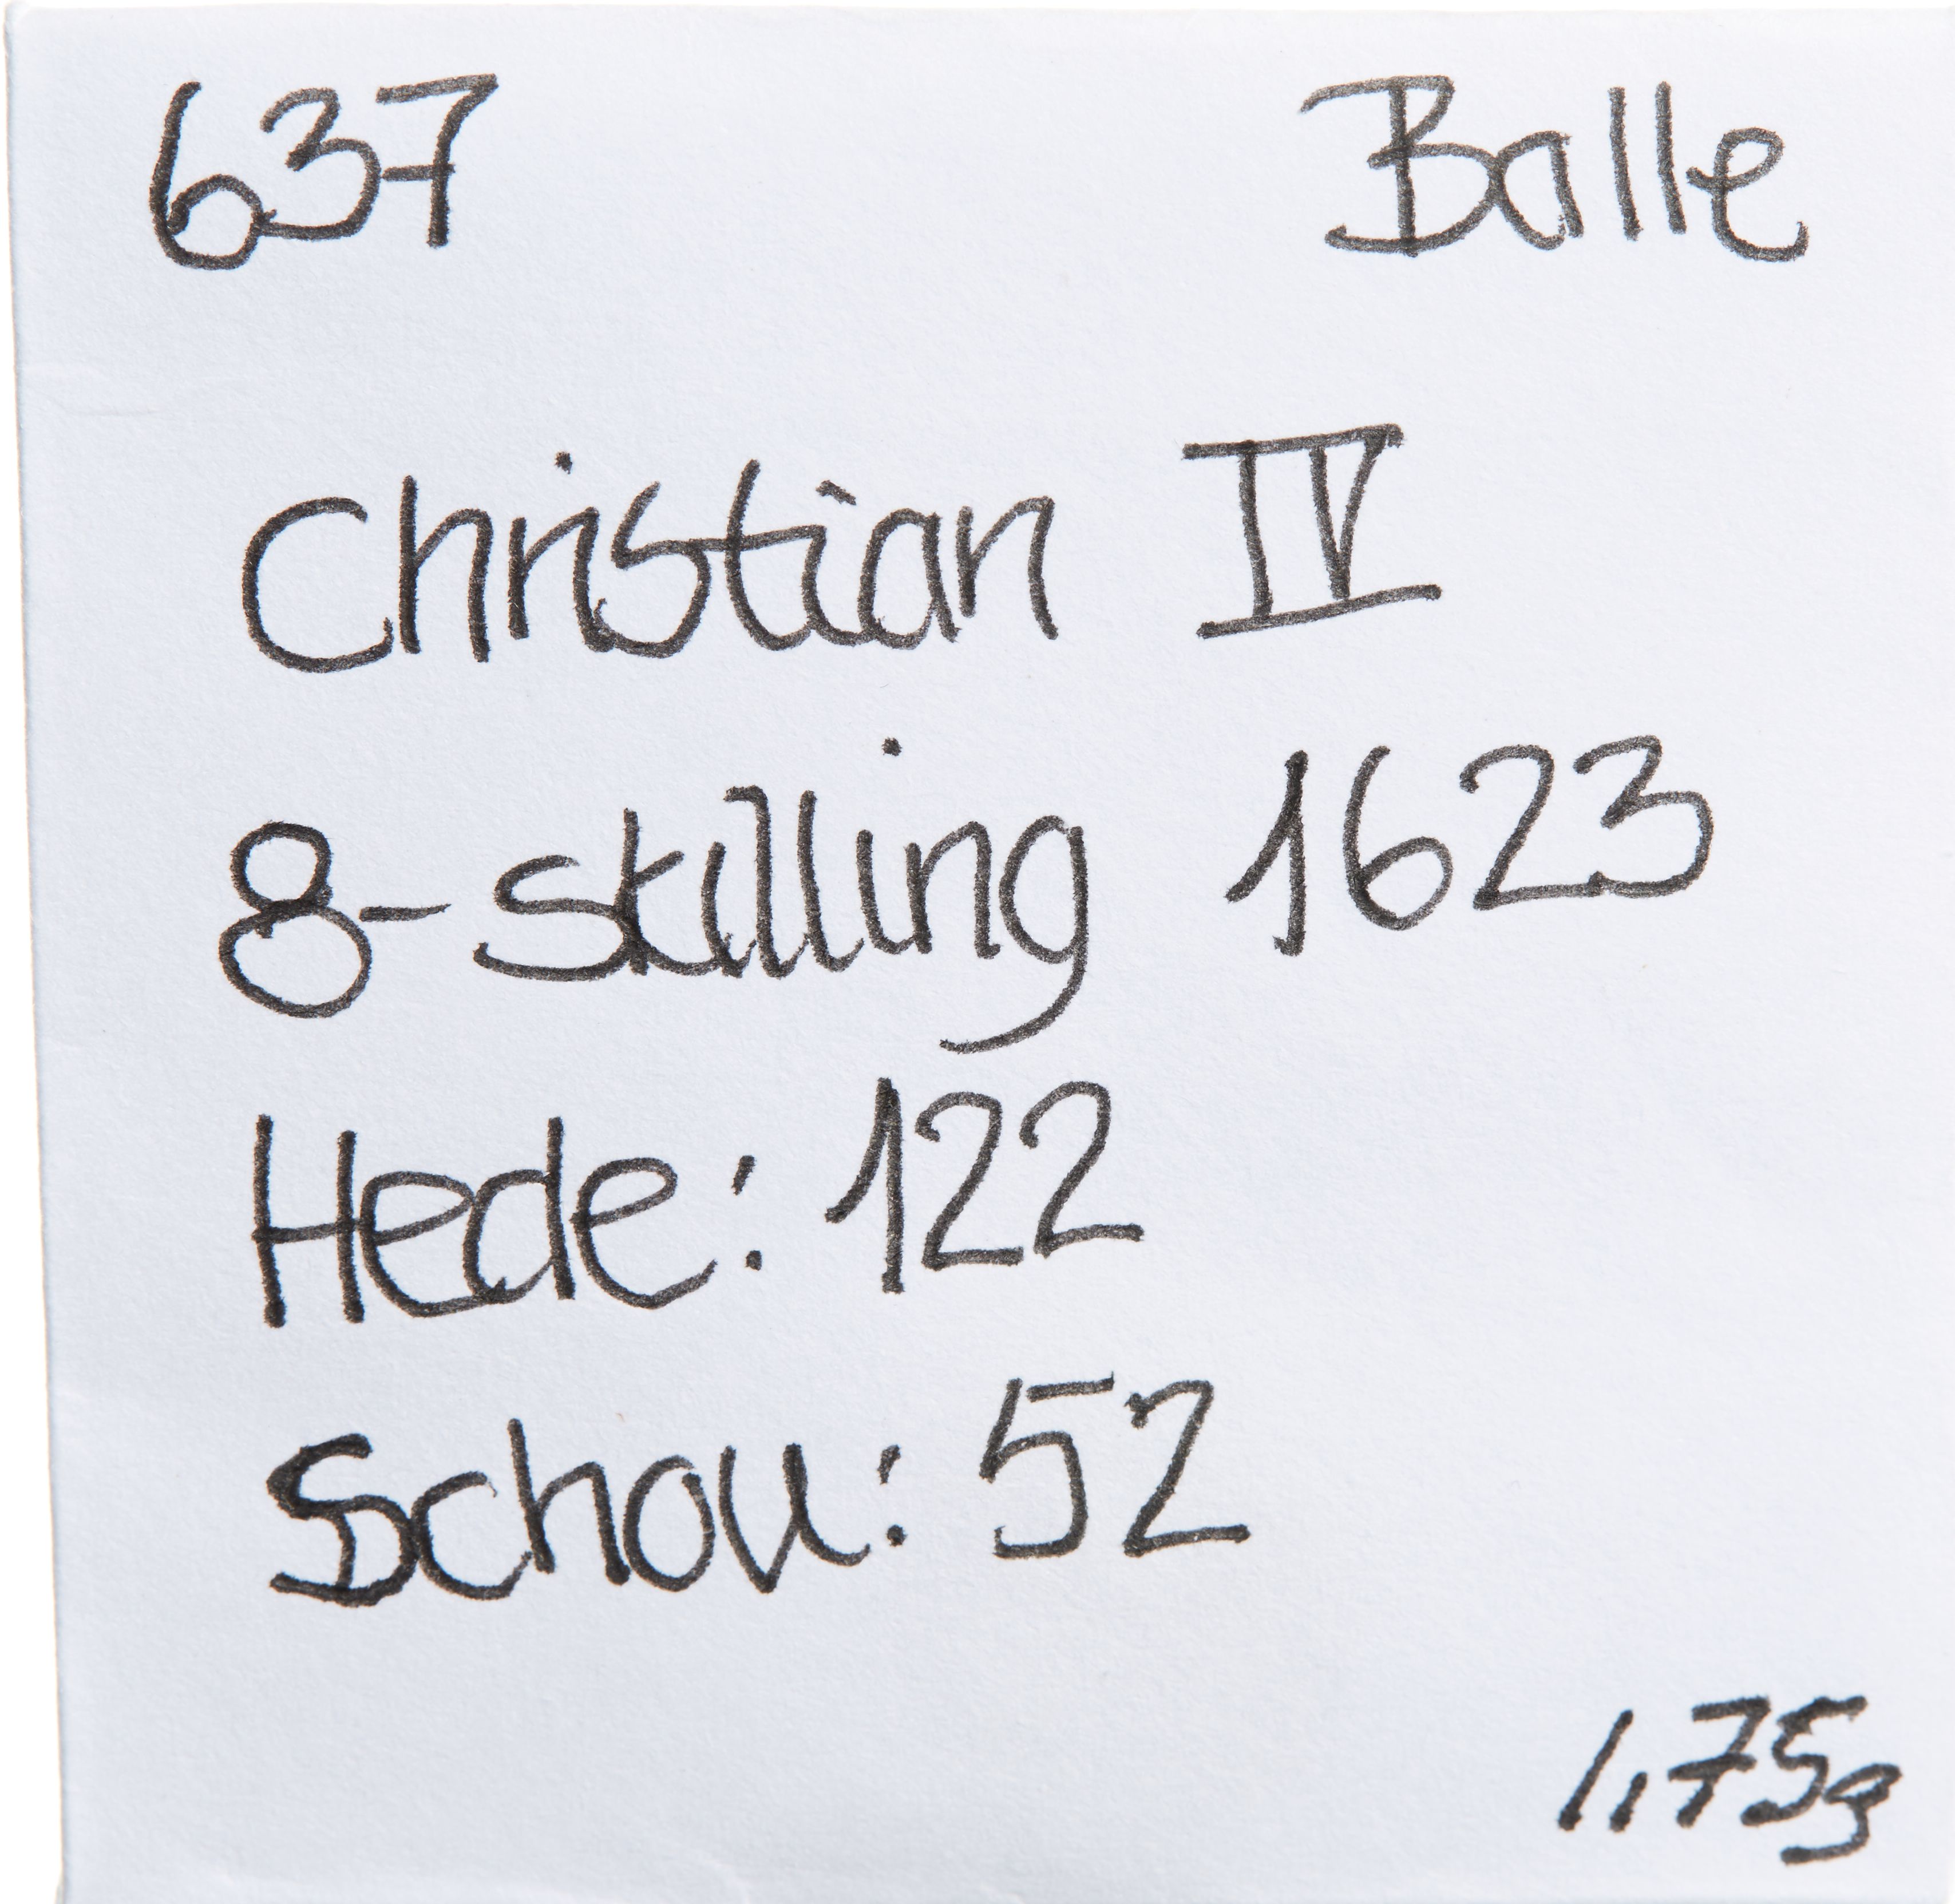 637 Balle
Christian IV
8-skilling 1623
Hede: 122
Schou: 52
1,75g